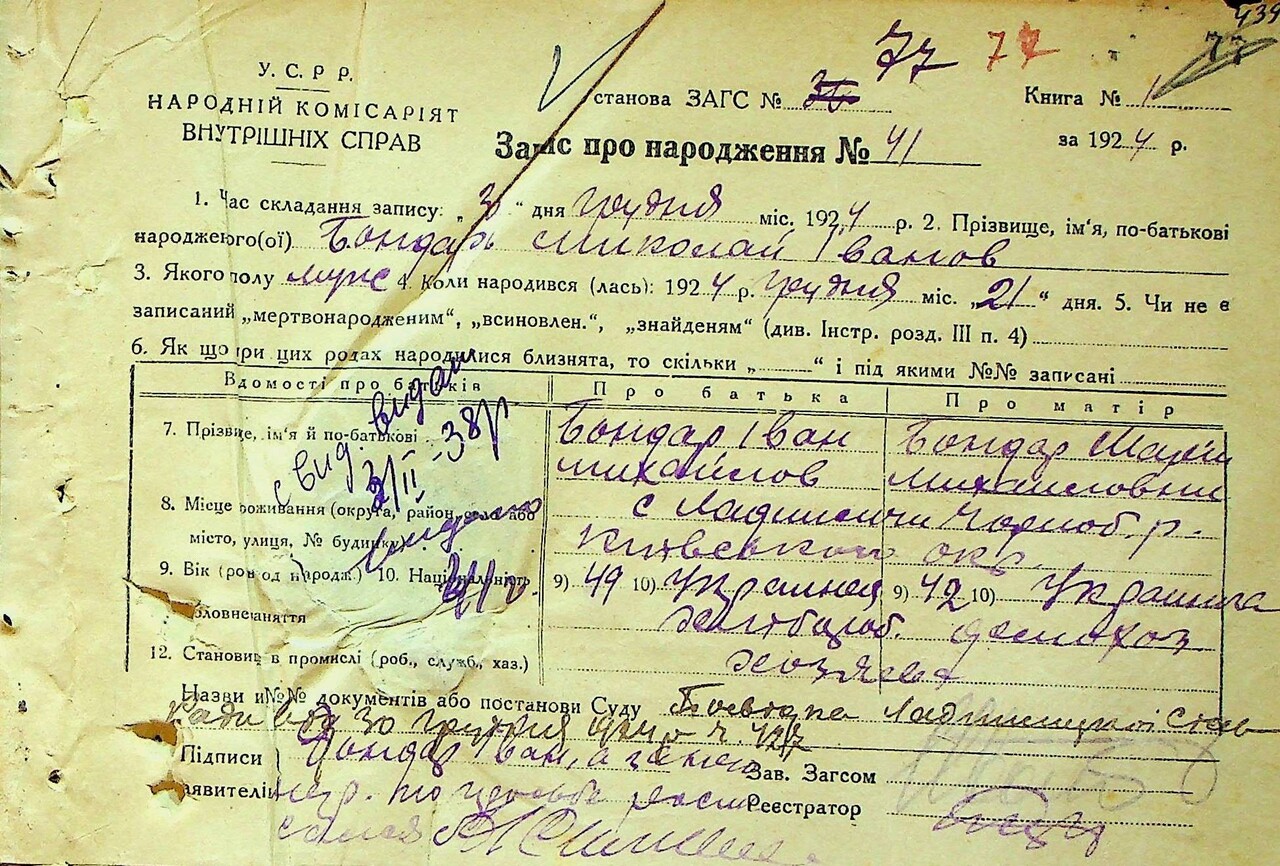 439
77 77 77
У. С. Р. Р.
НАРОДНІЙ КОМІСАРІЯТ
ВНУТРІШНІХ СПРАВ
станова ЗАГС №
Книга № 1
Запис про народження № 41
за 1924 р.
1. Час складання запису: „30“ дня грудня міс. 1924 р. 2. Прізвище, ім'я, по-батькові
народженого(ої) Бондарь Миколай Іванов
3. Якого полу муж 4. Коли народився (лась): 1924 р. грудня міс. „21“ дня. 5. Чи не є
записаний „мертвонародженим“, „всиновлен.“, „знайденям“ (див. Інстр. розд. III п. 4)
6. Як що при цих родах народилися близнята, то скільки „ “ і під якими №№ записані
Відомості про батьків Про батька Про матір
7. Прізвище, ім'я й по-батькові Бондар Іван Михайлов Бондар Марія
8. Місце проживання (округа, район, село або місто, улиця, № будинку) с Ладижичи Чорноб. р.
Київського окр.
9. Вік (рок од народж.) 10. Національність 9) 49 10) 9) 42 10)
головне заняття Хлібороб. домохоз
12. Становищ в промислі (роб., служб., хаз.) хозяева
с вид. видан
2/II-38р
Назви и №№ документів або постанови Суду
Ради від 30 грудня 1924 р ч. 427
Підписи Бондар Іван, а за него Зав. Загсом
заявителів по просьбе Реєстратор